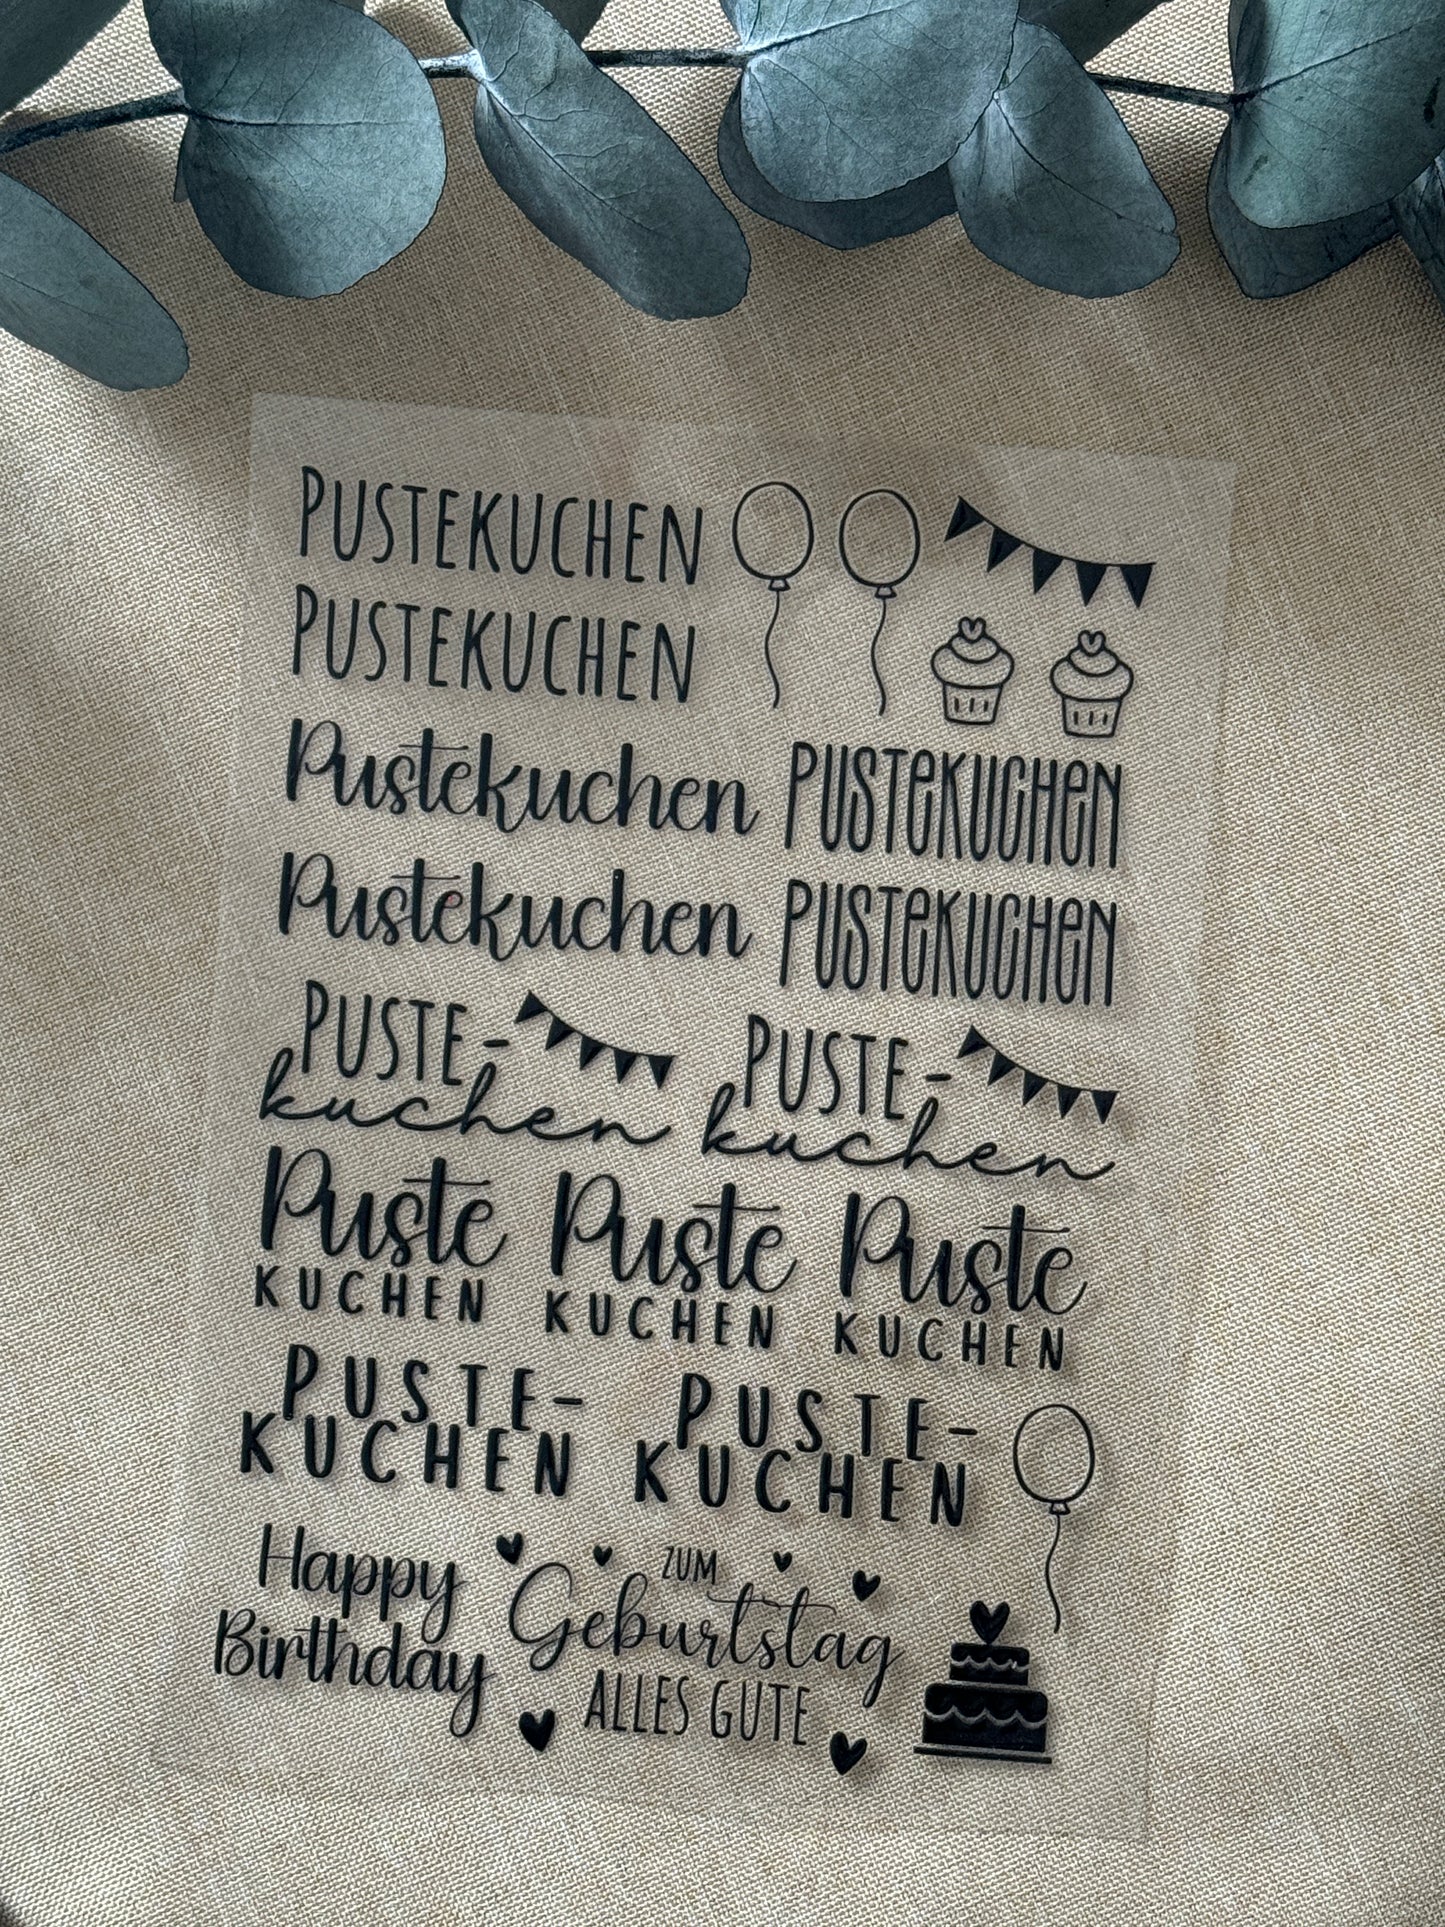 PUSTEKUCHEN
PUSTEKUCHEN
Pustekuchen
PUSTEKUCHEN
Pustekuchen
PUSTEKUCHEN
PUSTE-
kuchen
PUSTE-
kuchen
Puste Puste Puste
KUCHEN KUCHEN KUCHEN
PUSTE- PUSTE-
KUCHEN KUCHEN
Happy
Birthday
ZUM
Geburtstag
ALLES GUTE